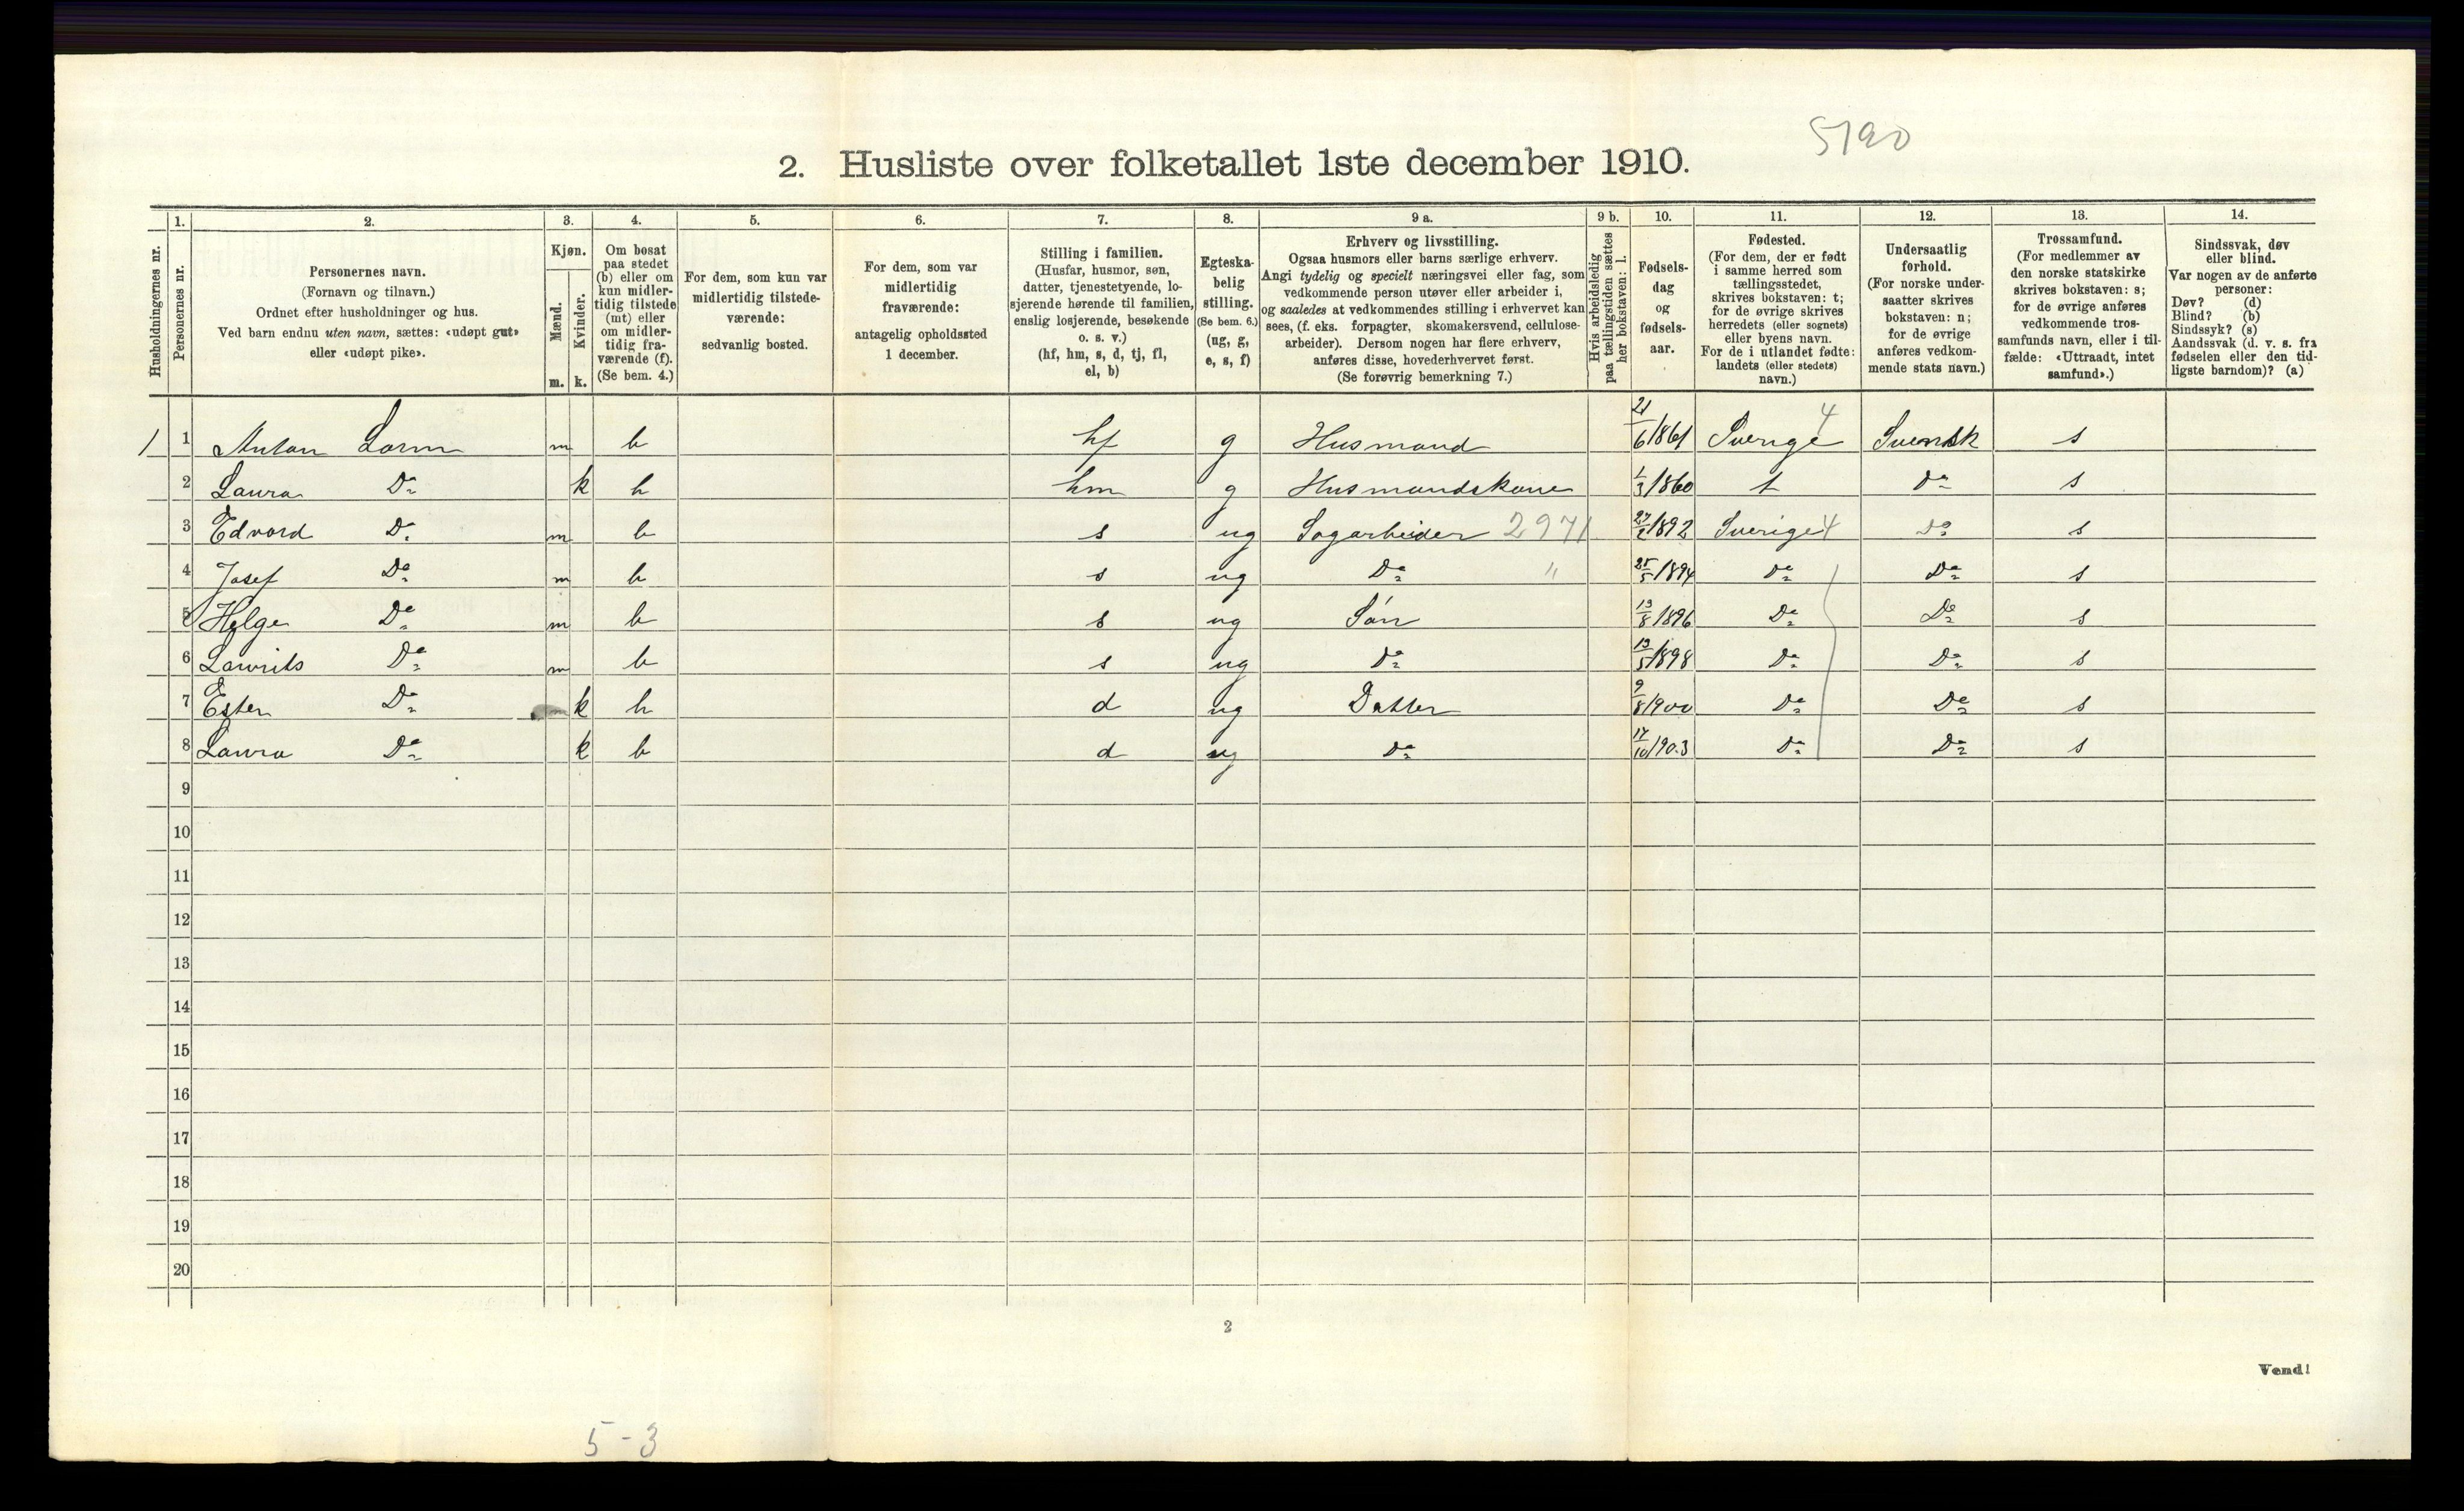 5190
2. Husliste over folketallet 1ste december 1910.
Husholdningernes nr.
1. Personernes nr.
2. Personernes navn.
(Fornavn og tilnavn.)
Ordnet efter husholdninger og hus.
Ved barn endnu uten navn, sættes: «udøpt gut»
eller «udøpt pike».
3. Kjøn.
Mænd. m.
Kvinder. k.
4. Om bosat
paa stedet
(b) eller om
kun midler-
tidig tilstede
(mt) eller
om midler-
tidig fra-
værende (f).
(Se bem. 4.)
5. For dem, som kun var
midlertidig tilstede-
værende:
sedvanlig bosted.
6. For dem, som var
midlertidig
fraværende:
antagelig opholdssted
1 december.
7. Stilling i familien.
(Husfar, husmor, søn,
datter, tjenestetyende, lo-
sjerende hørende til familien,
enslig losjerende, besøkende
o. s. v.)
(hf, hm, s, d, tj, fl,
el, b)
8. Egteska-
belig
stilling.
(Se bem. 6.)
(ug, g,
e, s, f)
9 a. Erhverv og livsstilling.
Ogsaa husmors eller barns særlige erhverv.
Angi tydelig og specielt næringsvei eller fag, som
vedkommende person utøver eller arbeider i,
og saaledes at vedkommendes stilling i erhvervet kan
sees, (f. eks. forpagter, skomakersvend, cellulose-
arbeider). Dersom nogen har flere erhverv,
anføres disse, hovederhvervet først.
(Se forøvrig bemerkning 7.)
9 b. Hvis arbeidsledig
paa tællingstiden sættes
her bokstaven: l.
10. Fødsels-
dag
og
fødsels-
aar.
11. Fødested.
(For dem, der er født
i samme herred som
tællingsstedet,
skrives bokstaven: t;
for de øvrige skrives
herredets (eller sognets)
eller byens navn.
For de i utlandet fødte:
landets (eller stedets)
navn.)
12. Undersaatlig
forhold.
(For norske under-
saatter skrives
bokstaven: n;
for de øvrige
anføres vedkom-
mende stats navn.)
13. Trossamfund.
(For medlemmer av
den norske statskirke
skrives bokstaven: s;
for de øvrige anføres
vedkommende tros-
samfunds navn, eller i til-
fælde: «Uttraadt, intet
samfund».)
14. Sindssvak, døv
eller blind.
Var nogen av de anførte
personer:
Døv? (d)
Blind? (b)
Sindssyk? (s)
Aandssvak (d. v. s. fra
fødselen eller den tid-
ligste barndom)? (a)
1 1 Anton Lorm m b hf g Husmand 21/6 1861 Sverige 4 Svensk s
2 Laura Do k b hm g Husmandskone 1/3 1860 t Do s
3 Edvard Do m b s ug Sagarbeider 2971 1892 Sverige 4 Do s
4 Josef Do m b s ug Do " 25/5 1894 Do Do s
5 Helge Do m b s ug Søn 13/8 1896 Do Do s
6 Laurits Do m b s ug Do 13/5 1898 Do Do s
7 Ester Do k b d ug Datter 9/8 1900 Do Do s
8 Laura Do k b d ug Do 17/10 1903 Do Do s
9
10
11
12
13
14
15
16
17
18
19
20
2
Vend!
5-3